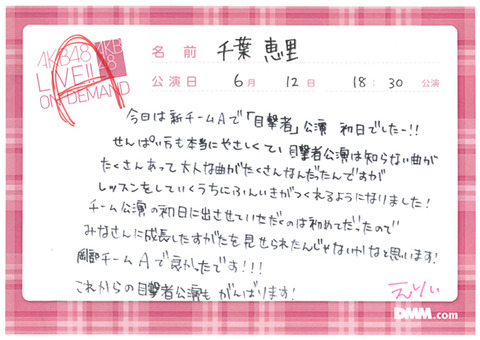 AKB48 AKB48
LIVE!! ON DEMAND
A
名前 千葉恵里
公演日 6月 12日 18:30 公演
今日は新チームAで「目撃者」公演 初日でしたー!!
せんぱい方も本当にやさしくてい 目撃者公演は知らない曲が
たくさんあって大人な曲がたくさんなんだったんですが
レッスンをしていくうちにふんいきがつくれるようになりました!
チーム公演の初日に出させていただくのは初めてだったので
みなさんに成長したすがたを見せられたんじゃないかなと思います!
岡部チームAで良かったです!!!
これからの目撃者公演もがんばります!
えりい
DMM.com